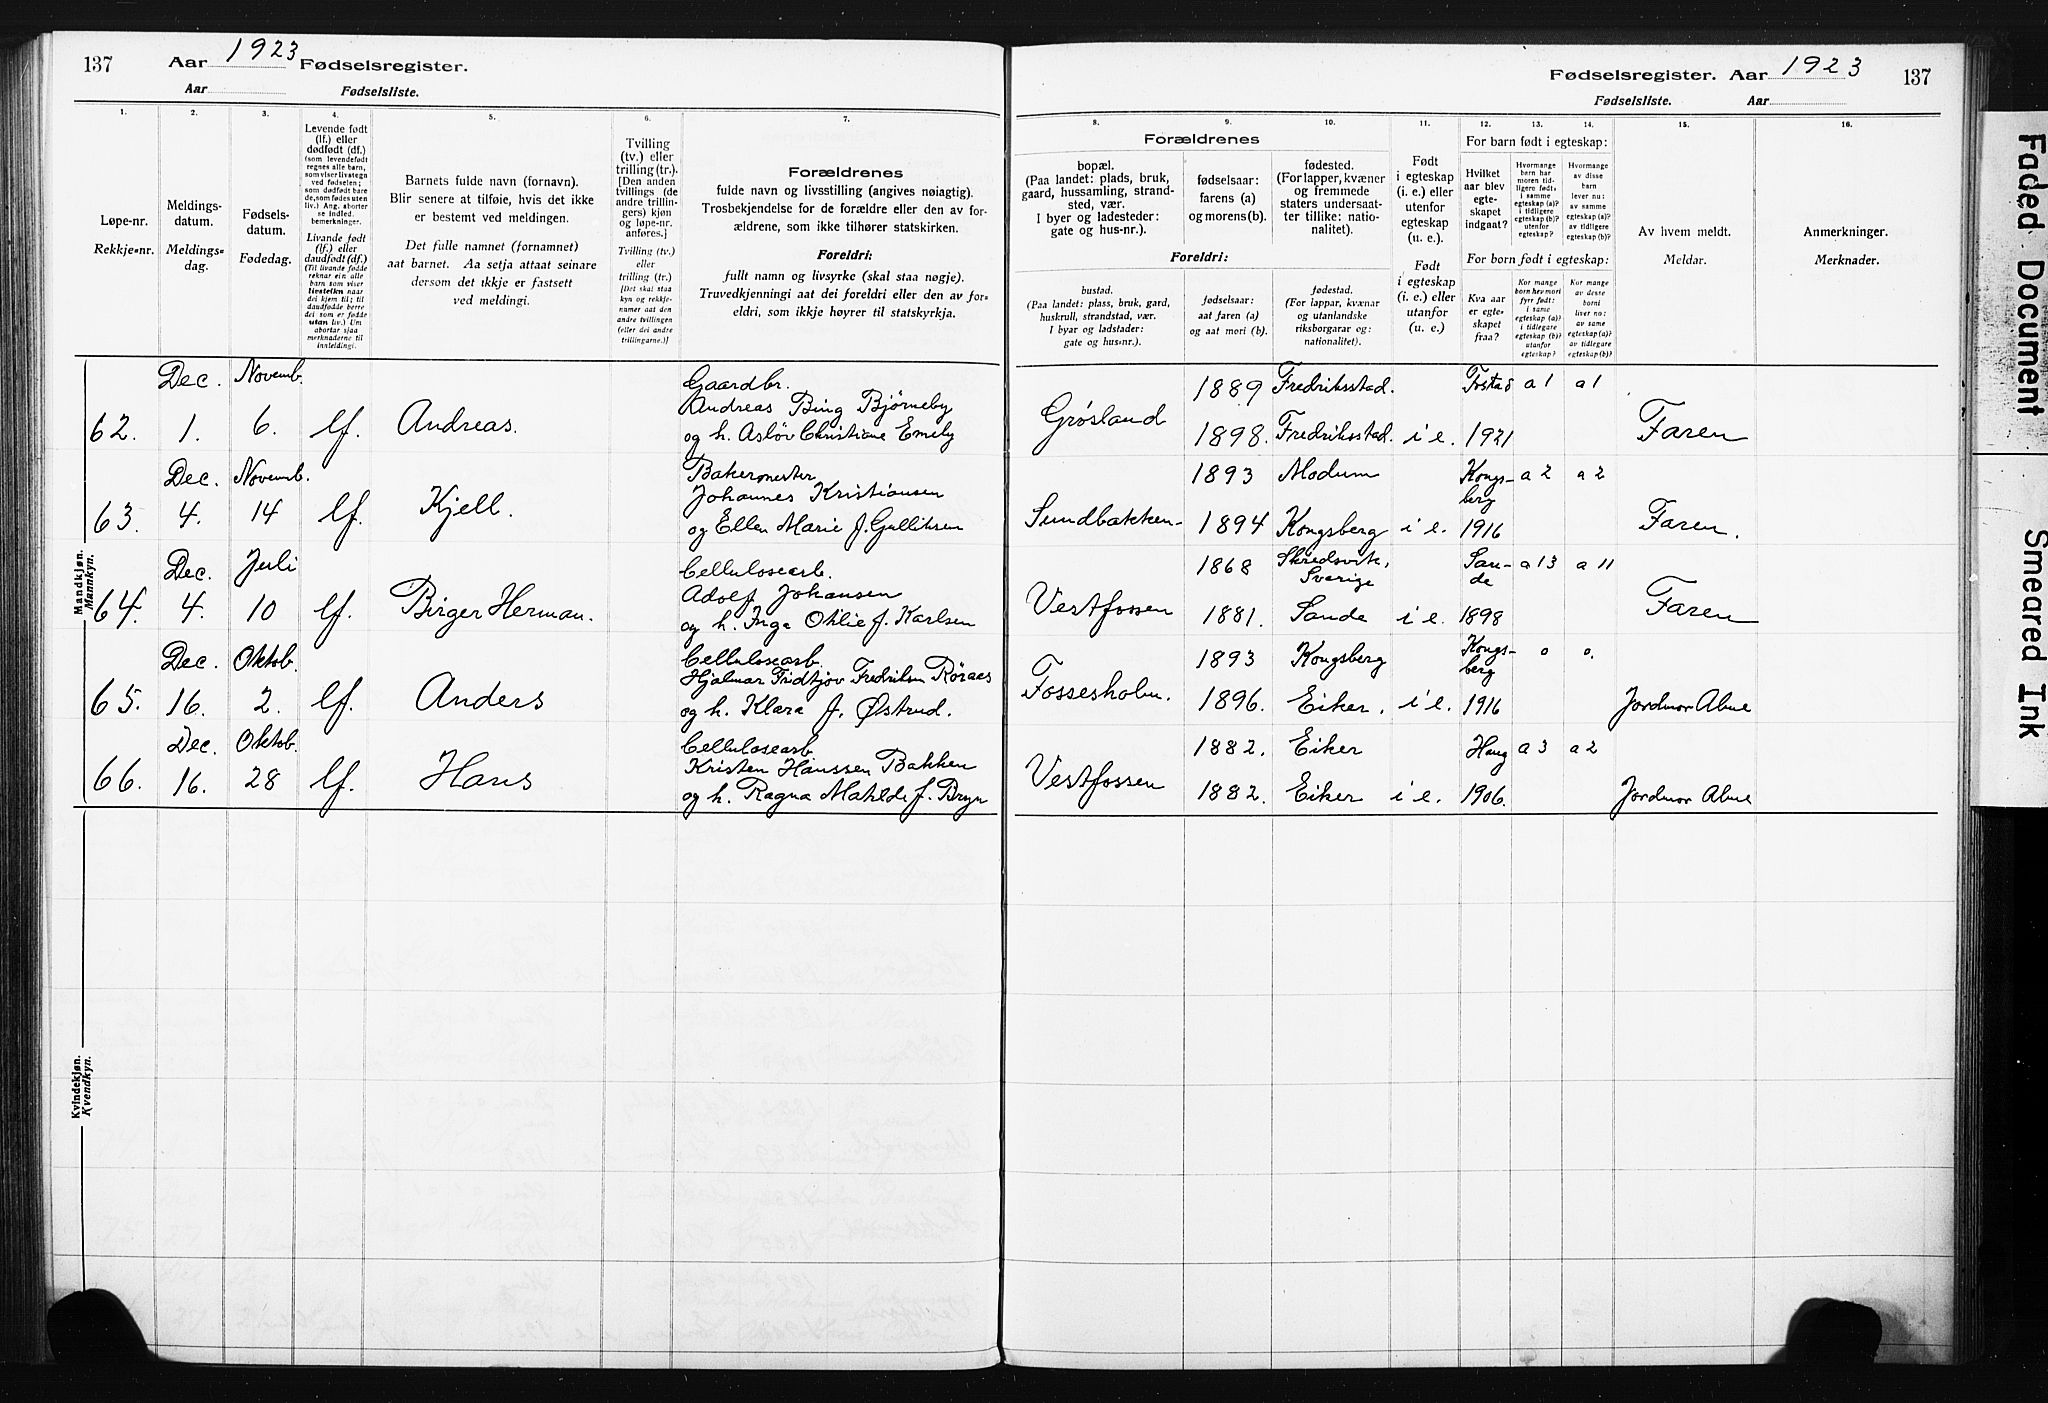 137 Aar 1923 Fødselsregister.
Aar Fødselsliste.
1. 2. 3. 4. 5. 6. 7.
Løpe-nr.
Rekkje-nr.
Meldings-
datum.
Meldings-
dag.
Fødsels-
datum.
Fødedag.
Levende født
(lf.) eller
dødfødt (df.)
(som levendefødt
regnes alle barn,
som viser livstegn
ved fødselen;
som dødfødt bare
de, som fødes uten
liv.) Ang. aborter
se indled.
bemerkninger.
Livande født
(lf.) eller
daudfødt (df.)
(Til livande fødde
reknar ein alle
barn som viser
livsteikn naar
dei kjem til; til
daudfødde berre
dei som er fødde
utan liv.) Um
abortar sjaa
merknaderne til
innleidingi.
Barnets fulde navn (fornavn).
Blir senere at tilføie, hvis det ikke
er bestemt ved meldingen.
Det fulle namnet (fornamnet)
aat barnet. Aa setja attaat seinare
dersom det ikkje er fastsett
ved meldingi.
Tvilling
(tv.) eller
trilling (tr.).
[Den anden
tvillings (de
andre trillin-
gers) kjøn
og løpe-nr.
anføres.]
Tvilling (tv.)
eller
trilling (tr.)
[Det skal staa
kyn og rekkje-
numer aat den
andre tvillingen
(eller dei andre
trillingarne.)]
Forældrenes
fulde navn og livsstilling (angives nøiagtig).
Trosbekjendelse for de forældre eller den av for-
ældrene, som ikke tilhører statskirken.
Foreldri:
fullt namn og livsyrke (skal staa nøgje).
Truvedkjenningi aat dei foreldri eller den av for-
eldri, som ikkje høyrer til statskyrkja.
Mandkjøn.
Mannkyn.
Dec. Novemb. Gaardbr.
Andreas Bing Bjørneby
62. 1. 6. lf. Andreas. og h. Asløv Christiane Emely
Dec. Novemb. Bakermester
Johannes Kristiansen
63. 4. 14 lf. Kjell. og Ellen Marie f. Gulliksen
Dec. Juli Cellulosearb.
Adolf Johansen
64. 4. 10 lf. Birger Herman. og h. Inga Othlie f. Karlsen
Dec. Oktob. Cellulosearb.
Hjalmar Fridtjov Fredriksen Röraas
65. 16. 2. lf. Anders og h. Klara f. Østrud.
Dec. Oktob. Cellulosearb.
Kristen Hanssen Bakken
66. 16. 28 lf. Hans og h. Ragna Mathilde f. Bryn
Kvindekjøn.
Kvendkyn.
Fødselsregister. Aar 1923 137
Fødselsliste. Aar
8. 9. 10. 11. 12. 13. 14. 15. 16.
Forældrenes
bopæl.
(Paa landet: plads, bruk,
gaard, hussamling, strand-
sted, vær.
I byer og ladesteder:
gate og hus-nr.).
fødselsaar:
farens (a)
og morens (b).
fødested.
(For lapper, kvæner
og fremmede
staters undersaat-
ter tillike: natio-
nalitet).
Foreldri:
bustad.
(Paa landet: plass, bruk, gard,
huskrull, strandstad, vær.
I byar og ladstader:
gate og hus-nr.).
fødselsaar:
aat faren (a)
og aat mori (b).
fødestad.
(For lappar, kvænar
og utanlandske
riksborgarar og:
nationalitet).
Født
i egteskap
(i. e.) eller
utenfor
egteskap
(u. e.).
Født
i egteskap
(i. e.) eller
utanfor
(u. e.)
For barn født i egteskap:
Hvilket
aar blev
egte-
skapet
indgaat?
Hvormange
barn har
moren tid-
ligere født:
i samme
egteskap (a)?
i tidligere
egteskap (b)?
utenfor
egteskap?
Hvormange
av disse
barn
lever nu:
av samme
egteskap (a)?
av tidligere
egteskap (b)?
For born født i egteskap:
Kva aar
er egte-
skapet
fraa?
Kor mange
born hev mori
fyrr født:
i same
egteskap (a)?
i tidlegare
egteskap (b)?
utanfor
egteskap?
Kor mange
av desse
borni
liver no:
av same
egteskap (a)?
av tidlegare
egteskap (b)?
Av hvem meldt.
Meldar.
Anmerkninger.
Merknader.
1889 Fredriksstad. a 1 a 1
Grösland 1898. Fredriksstad. i e. 1921 Faren
1893 Modum Kongs-
berg a 2 a 2
Sundbakken 1894 Kongsberg i e. 1916 Faren.
1868 Skredsvik,
Sverige San-
de a 13 a 11
Vestfossen 1881. Sande i e. 1898 Faren
1893 Kongsberg Kongs-
berg o o.
Fossesholm. 1896. Eiker. i e. 1916 Jordmor Alme
1882. Eiker Haug a 3 a 2
Vestfossen 1882. Eiker i e. 1906. Jordmor Alme
Faded Document
Smeared Ink